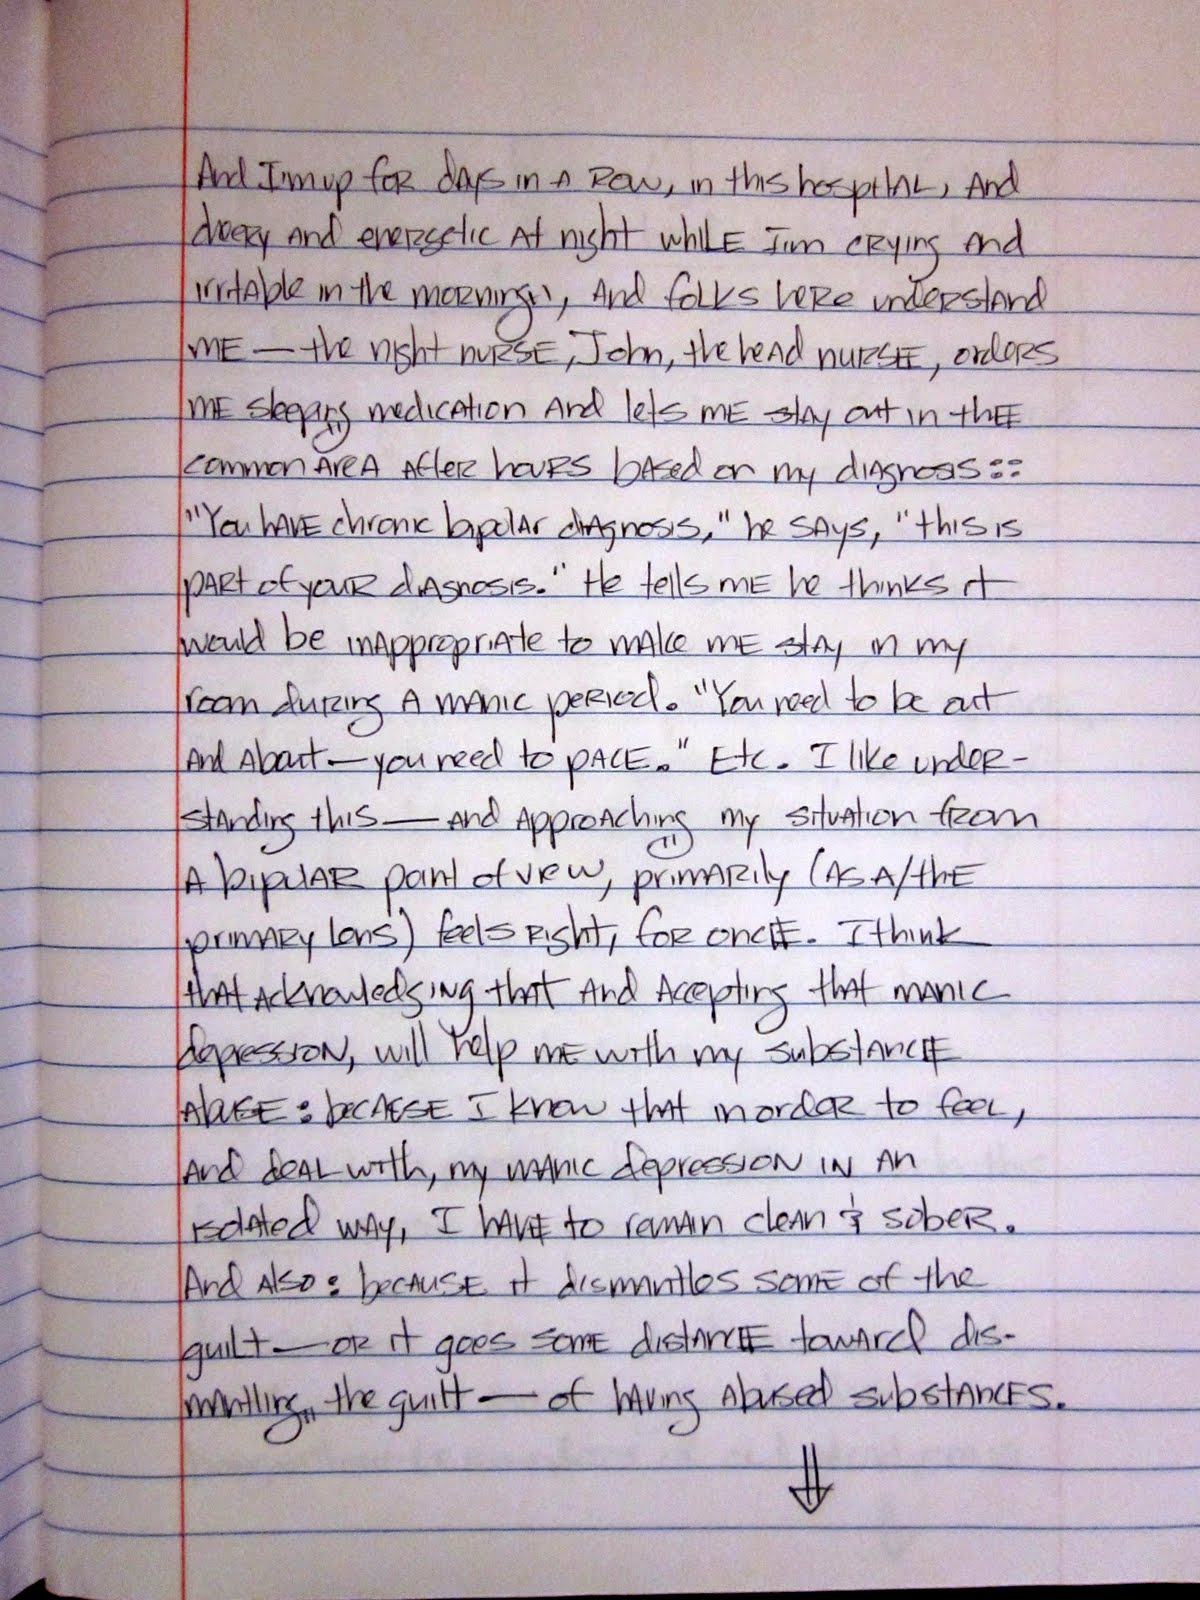 And I'm up for days in a row, in this hospital, and
cheery and energetic at night while I'm crying and
irritable in the morning, and folks here understand
me — the night nurse, John, the head nurse, orders
me sleeping medication and lets me stay out in the
common area after hours based on my diagnosis::
"You have chronic bipolar diagnosis," he says, "this is
part of your diagnosis." He tells me he thinks it
would be inappropriate to make me stay in my
room during a manic period. "You need to be out
and about — you need to pace." Etc. I like under-
standing this — and approaching my situation from
a bipolar point of view, primarily (as a/the
primary lens) feels right, for once. I think
that acknowledging that and accepting that manic
depression, will help me with my substance
abuse: because I know that in order to feel,
and deal with, my manic depression in an
isolated way, I have to remain clean & sober.
And also: because it dismantles some of the
guilt — or it goes some distance toward dis-
mantling the guilt — of having abused substances.